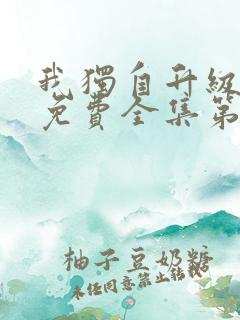 我獨自升級
免費全集第
柚子豆奶糖
未任同意禁止转载